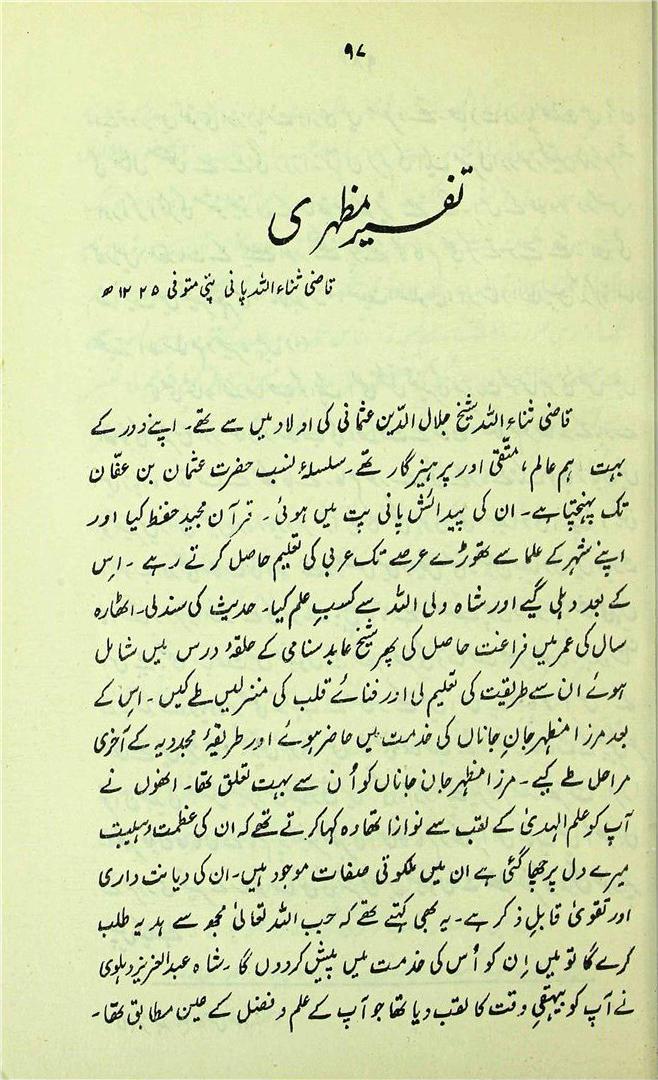 ۹۷
تفسیر مظہری
قاضی ثناء اللہ پانی پتی متوفی ۱۲۲۵ھ
قاضی ثناء اللہ شیخ جلال الدّین عثمانی کی اولاد میں سے تھے۔ اپنے دور کے
بہت ہم عالم، متّقی اور پرہیزگار تھے۔ سلسلۂ نسب حضرت عثمان بن عفّان
تک پہنچتا ہے۔ ان کی پیدائش پانی پت میں ہوئی۔ قرآن مجید حفظ کیا اور
اپنے شہر کے علما سے تھوڑے عرصے تک عربی کی تعلیم حاصل کرتے رہے۔ اس
کے بعد دہلی گیے اور شاہ ولی اللہ سے کسبِ علم کیا۔ حدیث کی سند لی۔ اٹھارہ
سال کی عمر میں فراغت حاصل کی پھر شیخ عابد سنامی کے حلقۂ درس میں شامل
ہوئے ان سے طریقت کی تعلیم لی اور فنائے قلب کی منزلیں طے کیں۔ اس کے
بعد مرزا مظہر جانِ جاناں کی خدمت میں حاضر ہوئے اور طریقۂ مجددیہ کے آخری
مراحل طے کیے۔ مرزا مظہر جان جاناں کو اُن سے بہت تعلق تھا۔ انھوں نے
آپ کو علم الہدیٰ کے لقب سے نوازا تھا وہ کہا کرتے تھے کہ ان کی عظمت و ہیبت
میرے دل پر چھا گئی ہے ان میں ملکوتی صفات موجود ہیں۔ ان کی دیانت داری
اور تقویٰ قابلِ ذکر ہے۔ یہ بھی کہتے تھے کہ جب اللہ تعالیٰ مجھ سے ہدیہ طلب
کرے گا تو میں اِن کو اُس کی خدمت میں پیش کردوں گا۔ شاہ عبدالعزیز دہلوی
نے آپ کو بیہقیِ وقت کا لقب دیا تھا جو آپ کے علم و فضل کے عین مطابق تھا۔